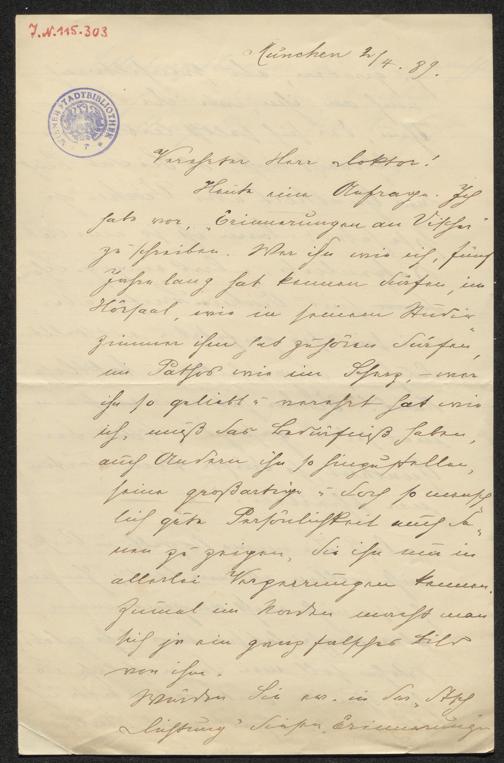 J.N. 115.303
München 2/4. 89.
WIENER STADTBIBLIOTHEK
Verehrter Herr Doktor!
Heute eine Anfrage. Ich
habe vor, „Erinnerungen an Vischer“
zu schreiben. Wer ihn wie ich, fünf
Jahre lang hat kennen dürfen, im
Hörsaal, wie in seinem Studir
zimmer ihm hat zuhören dürfen,
im Pathos wie im Scherz, – wer
ihn so geliebt u verehrt hat wie
ich, muß das Bedürfniß haben,
auch Andern ihn so hinzustellen,
seine großartige u doch so mensch
lich gute Persönlichkeit auch de-
nen zu zeigen, die ihn nur in
allerlei Verzerrungen kennen.
Zumal im Norden macht man
sich ja ein ganz falsches Bild
von ihm.
Würden Sie ev. in das
Dichtung“ diesen Erinnerungen